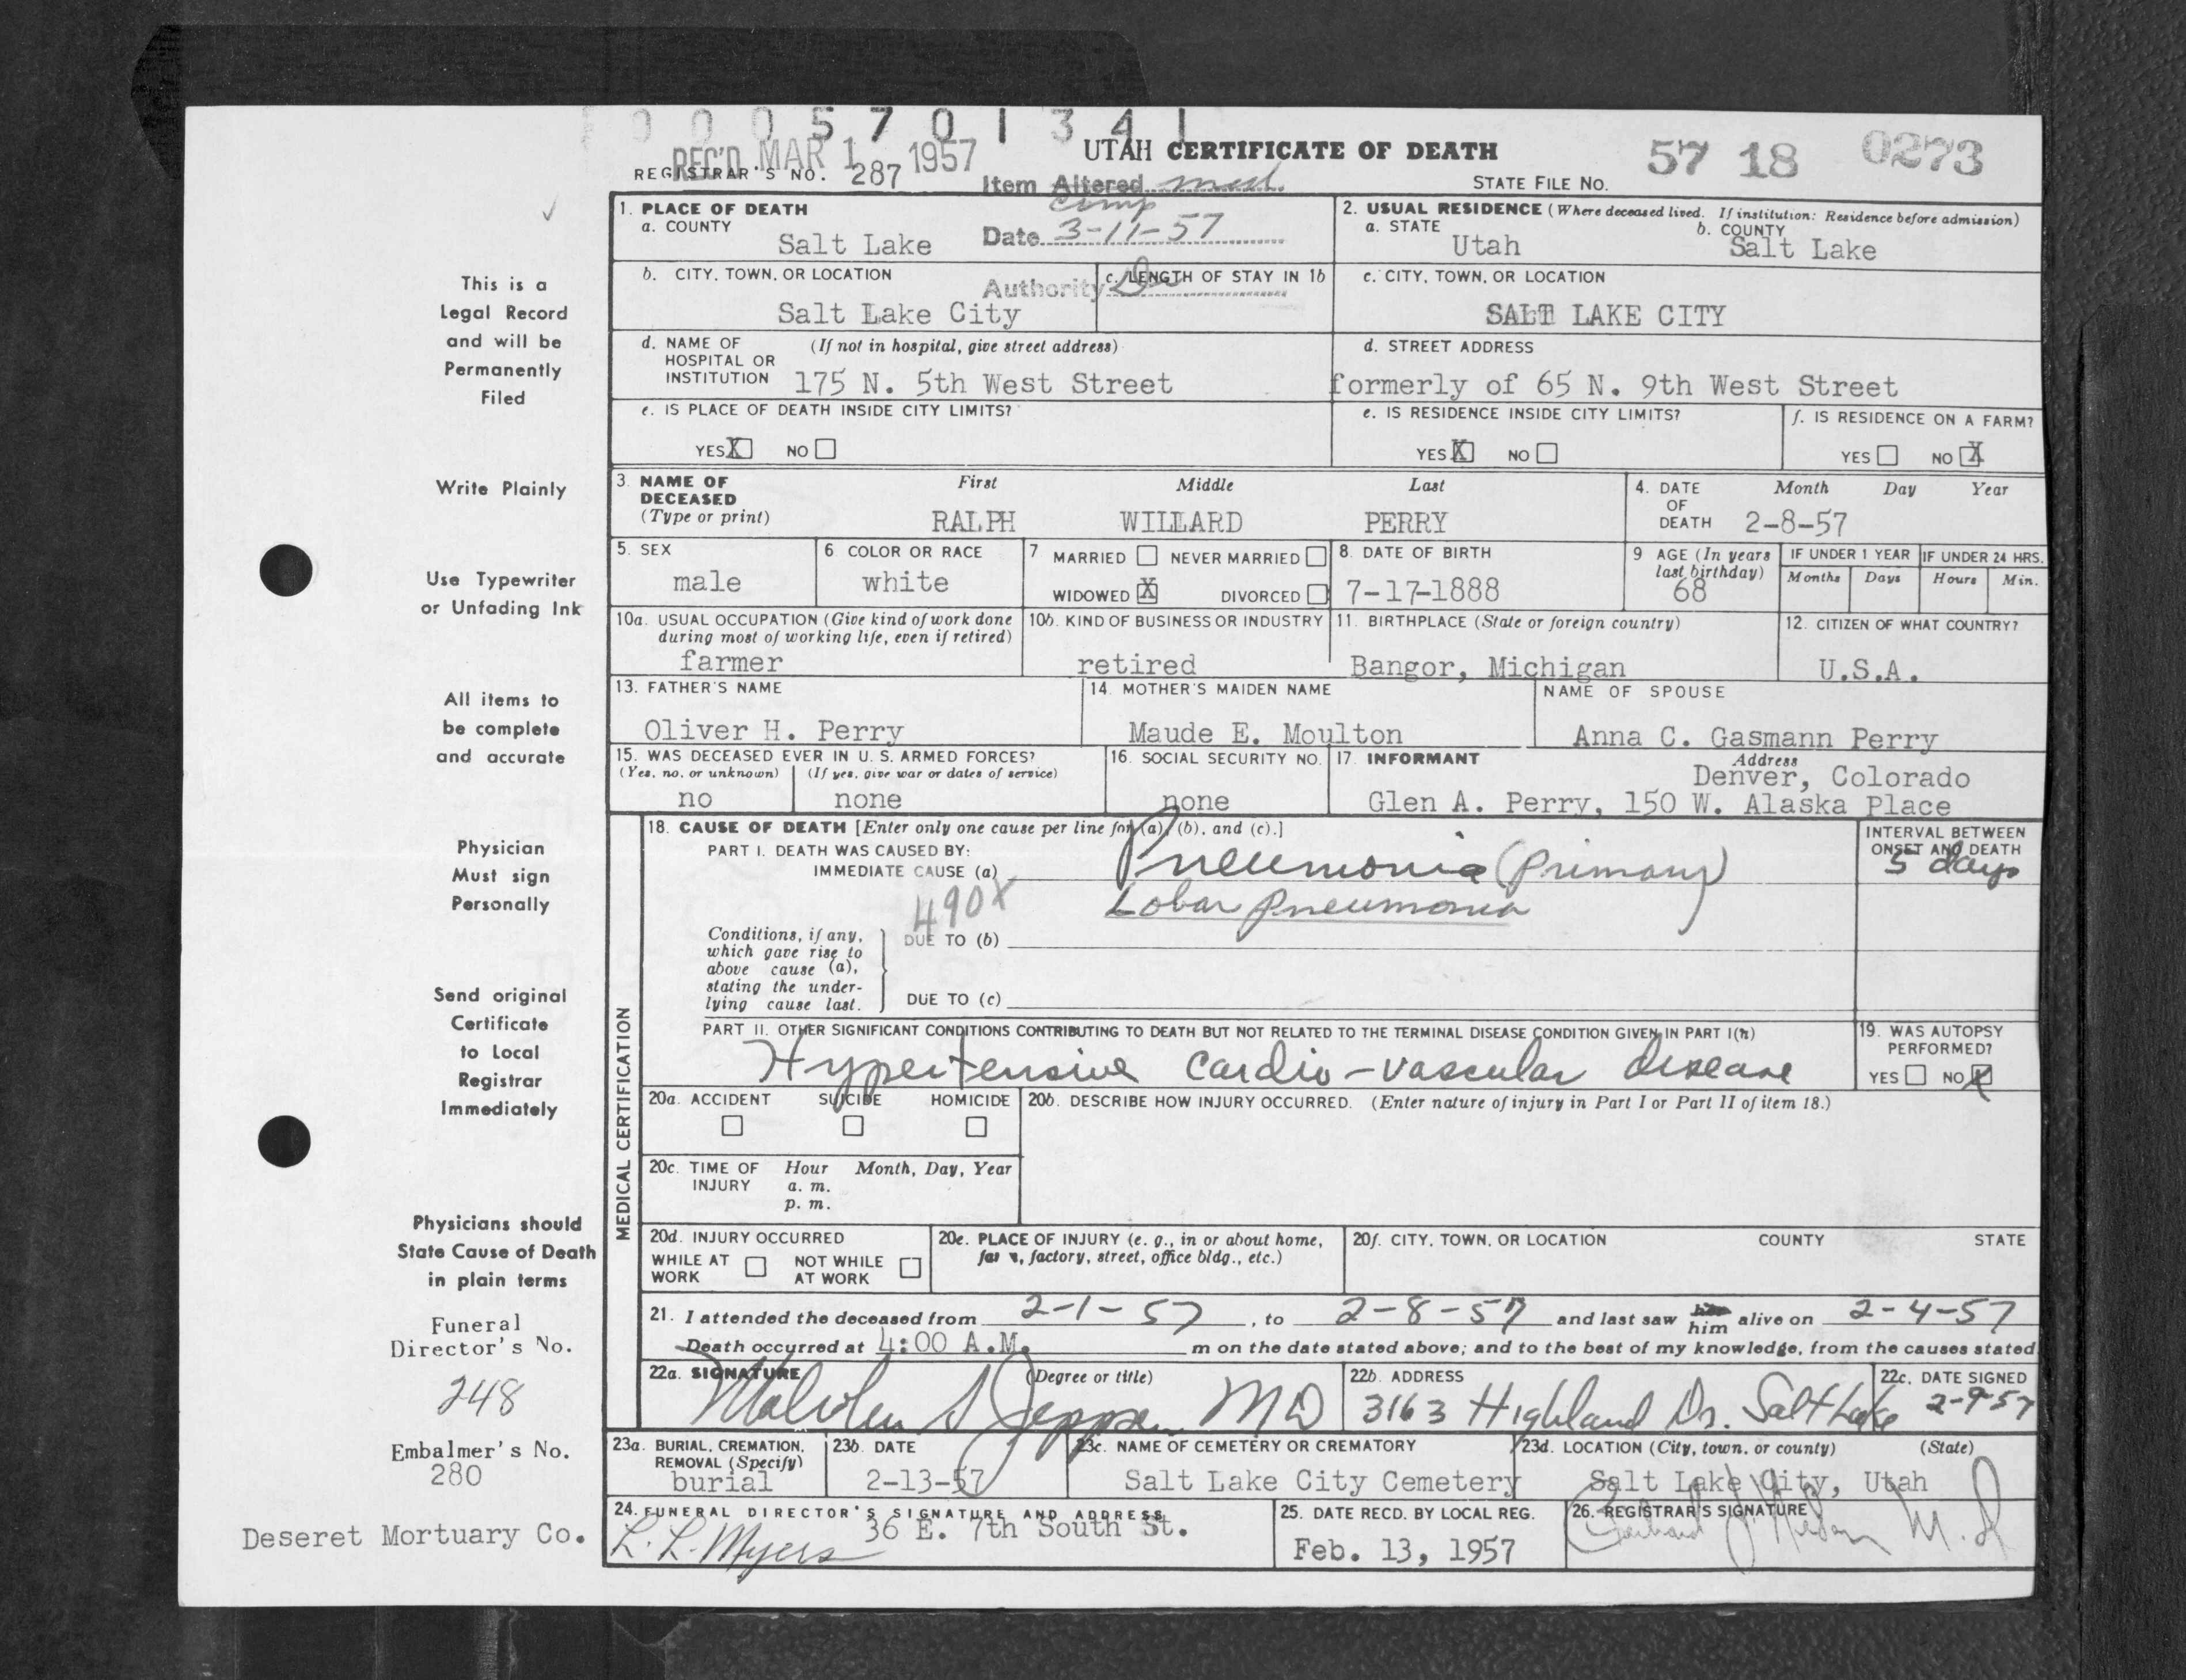 0 0 0 5 7 0 1 3 4 1
REC'D MAR 1 1957
UTAH CERTIFICATE OF DEATH
57 18 0273
REGISTRAR'S NO. 287
Item Altered med.
comp
STATE FILE NO.
Date 3-11-57
Authority Dr
1. PLACE OF DEATH
a. COUNTY
Salt Lake
2. USUAL RESIDENCE (Where deceased lived. If institution: Residence before admission)
a. STATE
Utah
b. COUNTY
Salt Lake
b. CITY, TOWN, OR LOCATION
Salt Lake City
c. LENGTH OF STAY IN 1b
c. CITY, TOWN, OR LOCATION
SALT LAKE CITY
d. NAME OF HOSPITAL OR INSTITUTION
(If not in hospital, give street address)
175 N. 5th West Street
d. STREET ADDRESS
formerly of 65 N. 9th West Street
e. IS PLACE OF DEATH INSIDE CITY LIMITS?
YES X NO
e. IS RESIDENCE INSIDE CITY LIMITS?
YES X NO
f. IS RESIDENCE ON A FARM?
YES NO X
3. NAME OF DECEASED (Type or print)
First Middle Last
RALPH WILLARD PERRY
4. DATE OF DEATH
Month Day Year
2-8-57
5. SEX
male
6. COLOR OR RACE
white
7 MARRIED NEVER MARRIED
WIDOWED X DIVORCED
8. DATE OF BIRTH
7-17-1888
9 AGE (In years last birthday)
68
IF UNDER 1 YEAR
Months Days
IF UNDER 24 HRS.
Hours Min.
10a. USUAL OCCUPATION (Give kind of work done during most of working life, even if retired)
farmer
10b. KIND OF BUSINESS OR INDUSTRY
retired
11. BIRTHPLACE (State or foreign country)
Bangor, Michigan
12. CITIZEN OF WHAT COUNTRY?
U.S.A.
13. FATHER'S NAME
Oliver H. Perry
14. MOTHER'S MAIDEN NAME
Maude E. Moulton
NAME OF SPOUSE
Anna C. Gasmann Perry
15. WAS DECEASED EVER IN U. S. ARMED FORCES?
(Yes, no, or unknown) (If yes, give war or dates of service)
no none
16. SOCIAL SECURITY NO.
none
17. INFORMANT
Address
Denver, Colorado
Glen A. Perry, 150 W. Alaska Place
MEDICAL CERTIFICATION
18. CAUSE OF DEATH [Enter only one cause per line for (a), (b), and (c).]
PART I. DEATH WAS CAUSED BY:
IMMEDIATE CAUSE (a) Pneumonia (Primary)
Lobar Pneumonia
490X
INTERVAL BETWEEN ONSET AND DEATH
5 days
Conditions, if any, which gave rise to above cause (a), stating the underlying cause last.
DUE TO (b)
DUE TO (c)
PART II. OTHER SIGNIFICANT CONDITIONS CONTRIBUTING TO DEATH BUT NOT RELATED TO THE TERMINAL DISEASE CONDITION GIVEN IN PART I(a)
Hypertensive cardio-vascular disease
19. WAS AUTOPSY PERFORMED?
YES NO X
20a. ACCIDENT SUICIDE HOMICIDE
20b. DESCRIBE HOW INJURY OCCURRED. (Enter nature of injury in Part I or Part II of item 18.)
20c. TIME OF INJURY
Hour Month, Day, Year
a. m.
p. m.
20d. INJURY OCCURRED
WHILE AT WORK NOT WHILE AT WORK
20e. PLACE OF INJURY (e. g., in or about home, farm, factory, street, office bldg., etc.)
20f. CITY, TOWN, OR LOCATION COUNTY STATE
21. I attended the deceased from 2-1-57, to 2-8-57 and last saw him alive on 2-4-57
Death occurred at 4:00 A.M. m on the date stated above; and to the best of my knowledge, from the causes stated
22a. SIGNATURE (Degree or title)
Malcolm S Jeppsen MD
22b. ADDRESS
3163 Highland Dr. Salt Lake
22c. DATE SIGNED
2-9-57
23a. BURIAL, CREMATION, REMOVAL (Specify)
burial
23b. DATE
2-13-57
23c. NAME OF CEMETERY OR CREMATORY
Salt Lake City Cemetery
23d. LOCATION (City, town, or county) (State)
Salt Lake City, Utah
24. FUNERAL DIRECTOR'S SIGNATURE AND ADDRESS
36 E. 7th South St.
L. L. Myers
25. DATE RECD. BY LOCAL REG.
Feb. 13, 1957
26. REGISTRAR'S SIGNATURE
M. D
This is a
Legal Record
and will be
Permanently
Filed
Write Plainly
Use Typewriter
or Unfading Ink
All items to
be complete
and accurate
Physician
Must sign
Personally
Send original
Certificate
to Local
Registrar
Immediately
Physicians should
State Cause of Death
in plain terms
Funeral
Director's No.
248
Embalmer's No.
280
Deseret Mortuary Co.